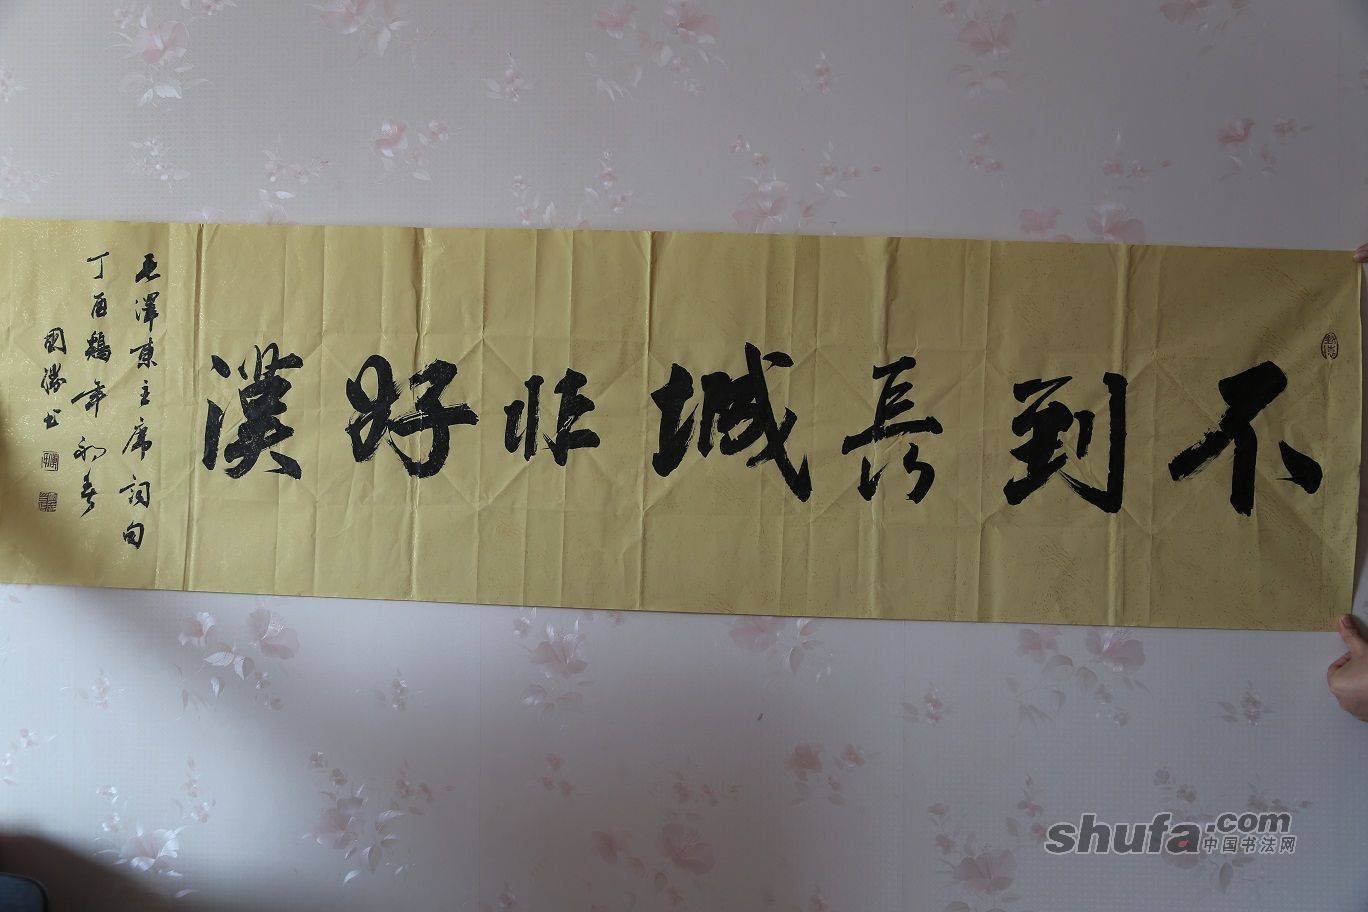 不到長城非好漢
毛澤東主席詞句
丁酉鷄年初春
國勝书
shufa.com
中国书法网